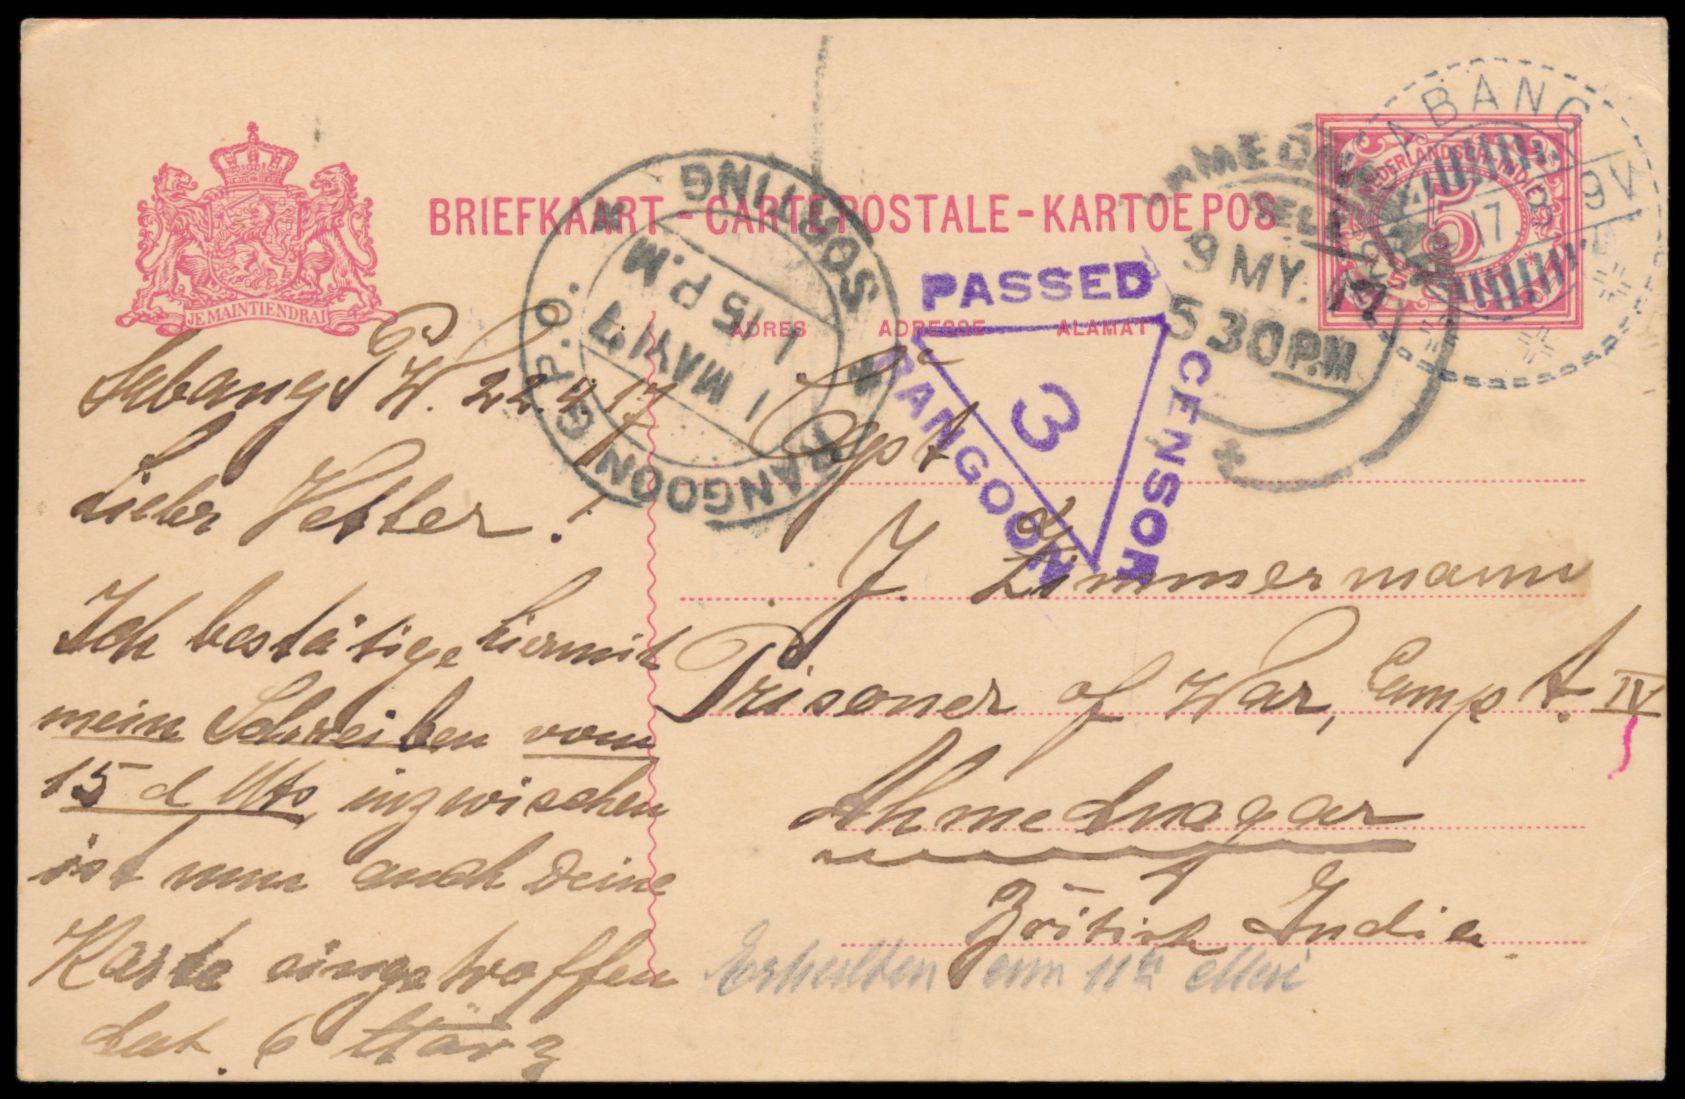 BRIEFKAART - CARTE POSTALE - KARTOE POS
JE MAINTIENDRAI
ADRES ADRESSE ALAMAT
NEDERLANDSCH-INDIE
5
ABANG
17
9V
RANGOON G.P.O.
SORTING
1 MAY 17
1 15 P.M
PASSED
CENSOR
RANGOON
3
9 MY. 17
5 30 P.M
Sabang P. W. 22.4.17
Lieber Vetter!
Ich bestätige hiermit
mein Schreiben vom
15 d Mts, inzwischen
ist nun auch Deine
Karte eingetroffen
dat. 6 März
Cpt
J. Zimmermann
Prisoner of War, Camp A. IV
Ahmednagar
British India.
Erhalten am 11ten Mai